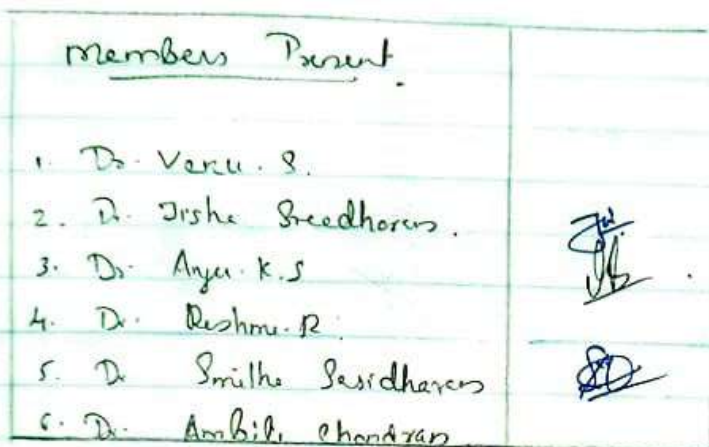 Members Present.
1. Dr. Venu. S.
2. Dr. Jisha Sreedharan.
3. Dr. Anju. K.S
4. Dr. Reshmi. R
5. Dr Smitha Sasidharan
6. Dr. Ambili Chandran